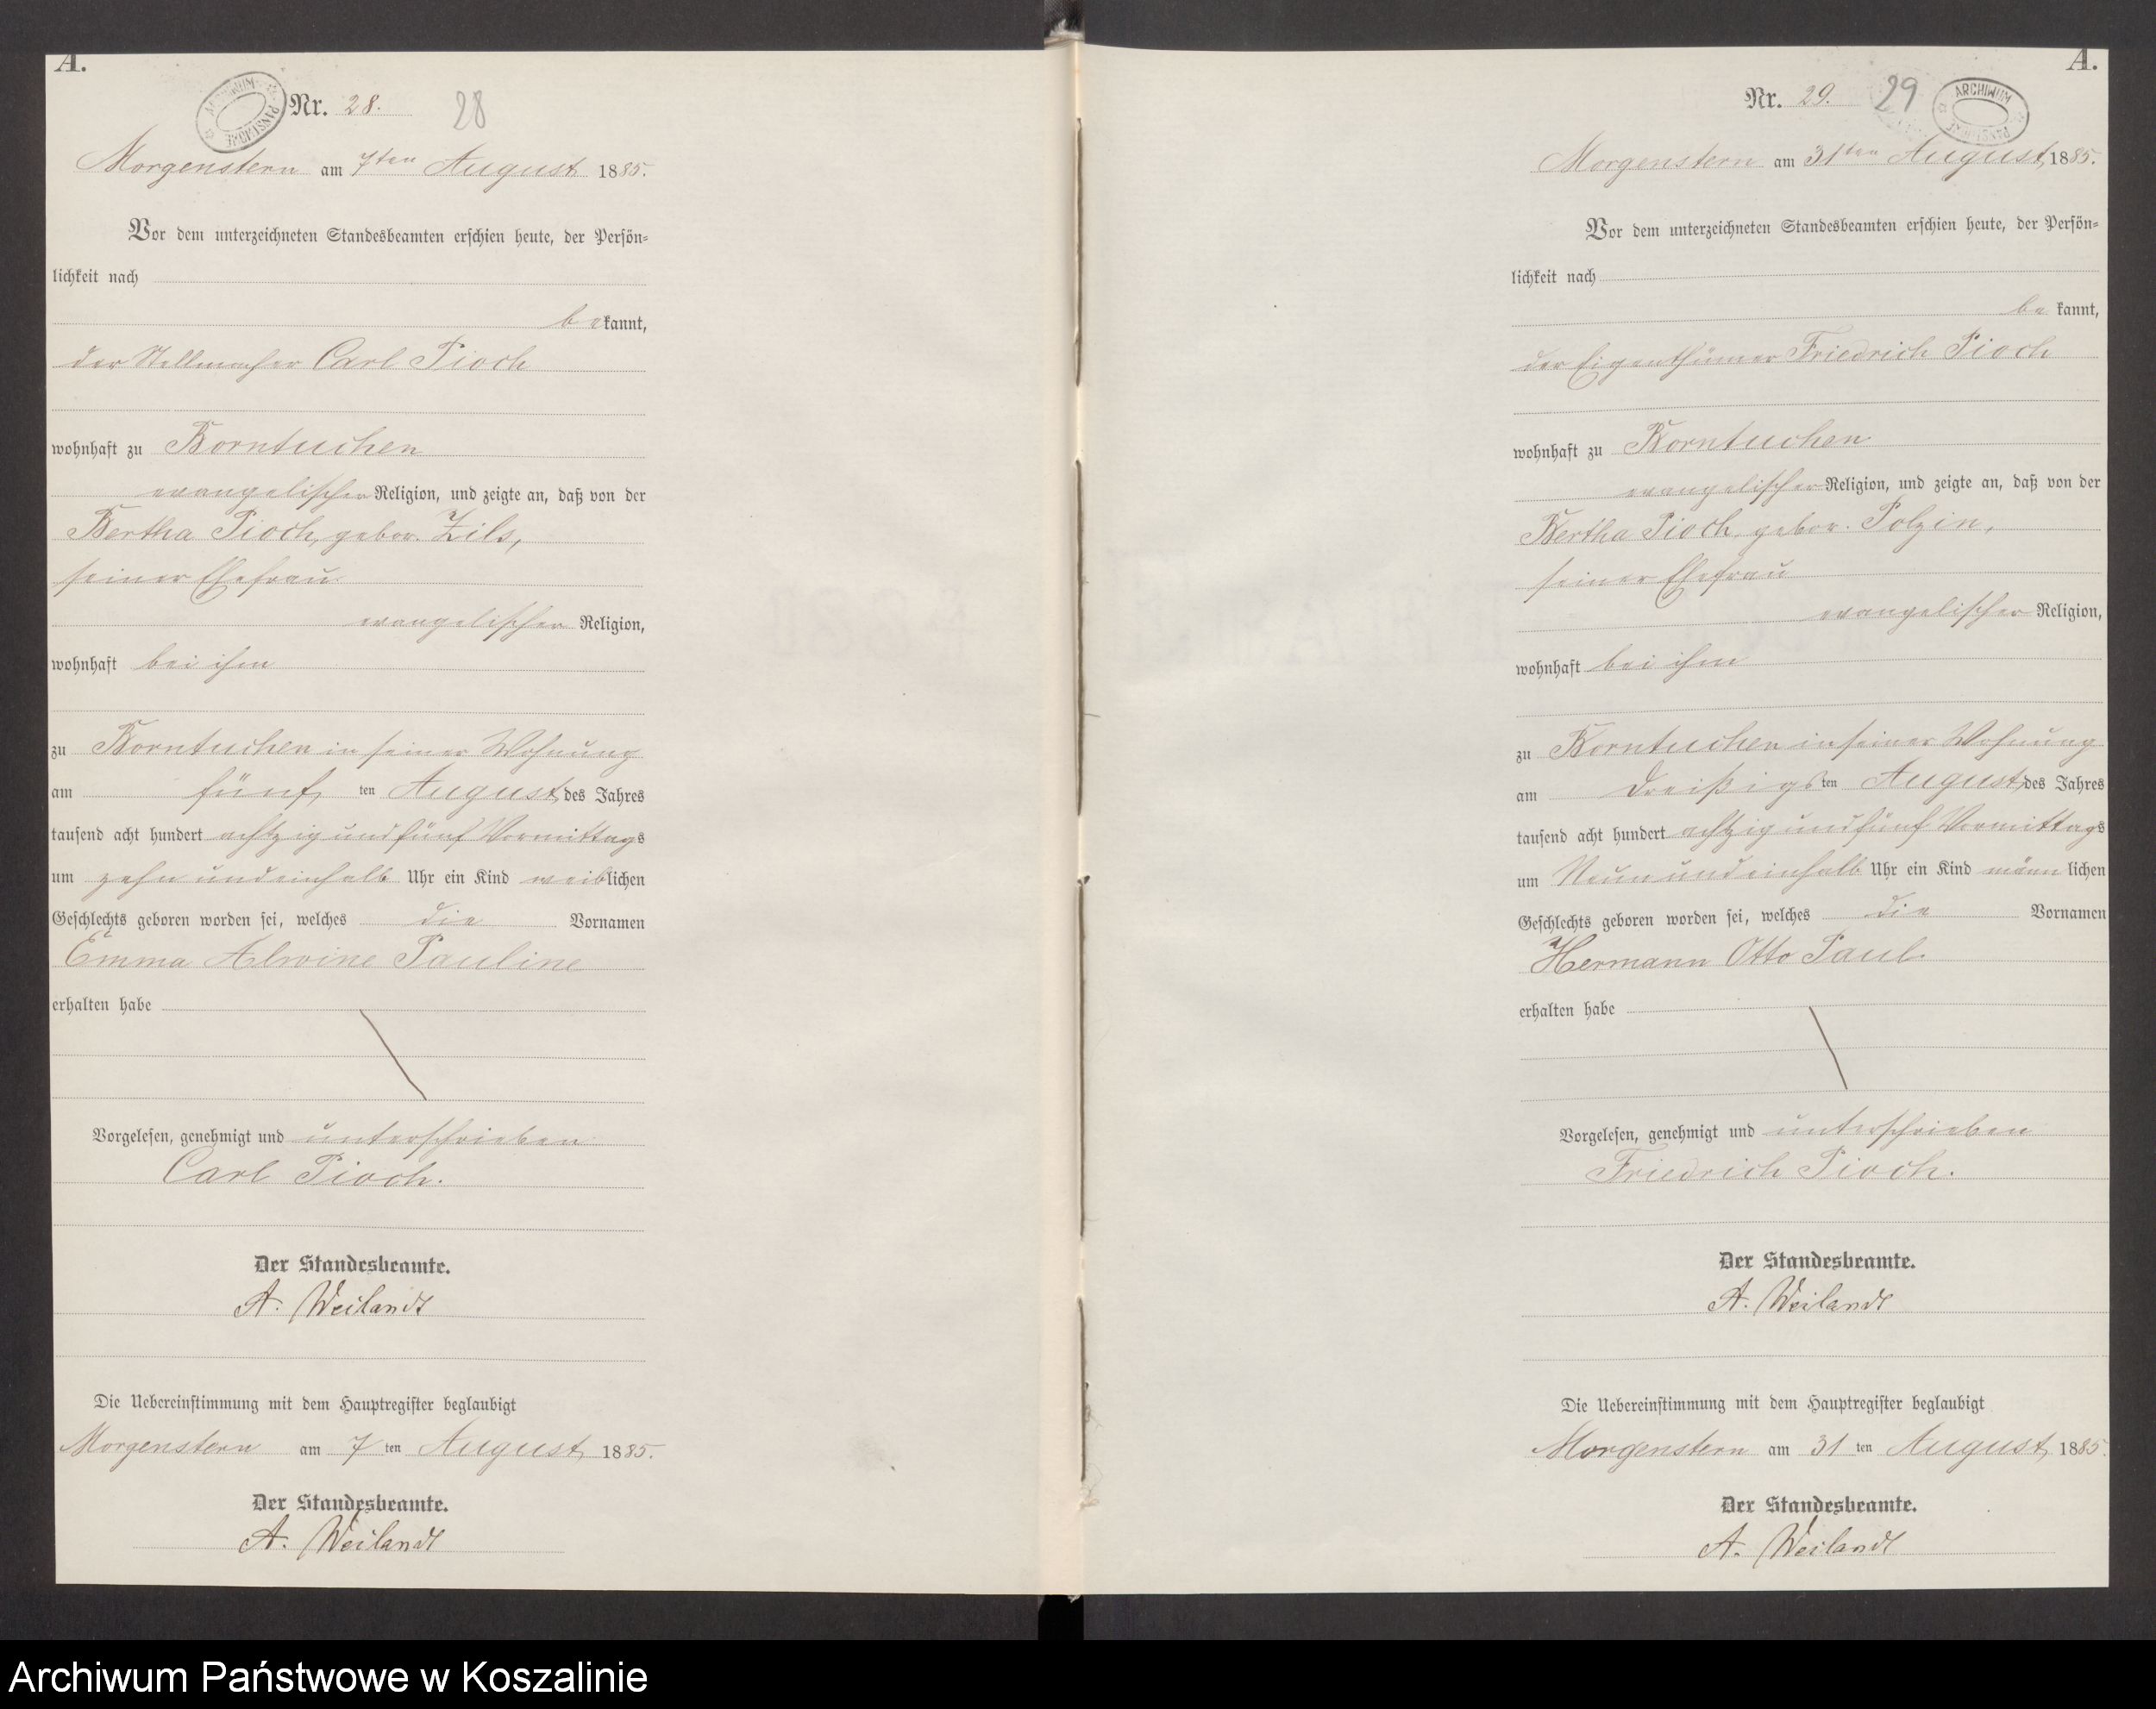 A.
Nr. 28. 28
Morgenstern am 7ten August 1885.
Vor dem unterzeichneten Standesbeamten erschien heute, der Persön=
lichkeit nach
bekannt,
der Stellmacher Carl Pioch
wohnhaft zu Borntuchen
evangelischer Religion, und zeigte an, daß von der
Bertha Pioch, gebor. Zils,
seiner Ehefrau
evangelischer Religion,
wohnhaft bei ihm
zu Borntuchen in seiner Wohnung
am fünf ten August des Jahres
tausend acht hundert achtzig und fünf Vormittags
um zehn und einhalb Uhr ein Kind weiblichen
Geschlechts geboren worden sei, welches die Vornamen
Emma Alwine Pauline
erhalten habe
Vorgelesen, genehmigt und unterschrieben
Carl Pioch.
Der Standesbeamte.
A. Weilandt
Die Uebereinstimmung mit dem Hauptregister beglaubigt
Morgenstern am 7 ten August 1885.
Der Standesbeamte.
A. Weilandt
A.
Nr. 29. 29
ARCHIWUM
Morgenstern am 31ten August 1885.
Vor dem unterzeichneten Standesbeamten erschien heute, der Persön=
lichkeit nach
be kannt,
der Eigenthümer Friedrich Pioch
wohnhaft zu Borntuchen
evangelischer Religion, und zeigte an, daß von der
Bertha Pioch, gebor. Polzin,
seiner Ehefrau
evangelischer Religion,
wohnhaft bei ihm
zu Borntuchen in seiner Wohnung
am dreißigsten August des Jahres
tausend acht hundert achtzig und fünf Vormittags
um Neun und einhalb Uhr ein Kind männ lichen
Geschlechts geboren worden sei, welches die Vornamen
Hermann Otto Paul.
erhalten habe
Vorgelesen, genehmigt und unterschrieben
Friedrich Pioch.
Der Standesbeamte.
A. Weilandt
Die Uebereinstimmung mit dem Hauptregister beglaubigt
Morgenstern am 31 ten August 1885.
Der Standesbeamte.
A. Weilandt
Archiwum Państwowe w Koszalinie